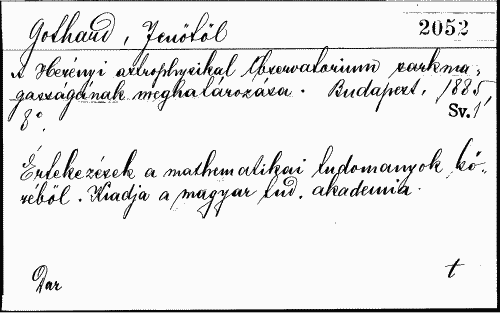 Gothard, Jenőtől 2052
A Herényi astrophysikal Observatorium sarkma-
gasságának meghatározása. Budapest, 1885,
8°. Sv. 1
Értekezések a mathematikai tudomanyok kö-
réből. Kiadja a magyar tud. akademia.
Dar t